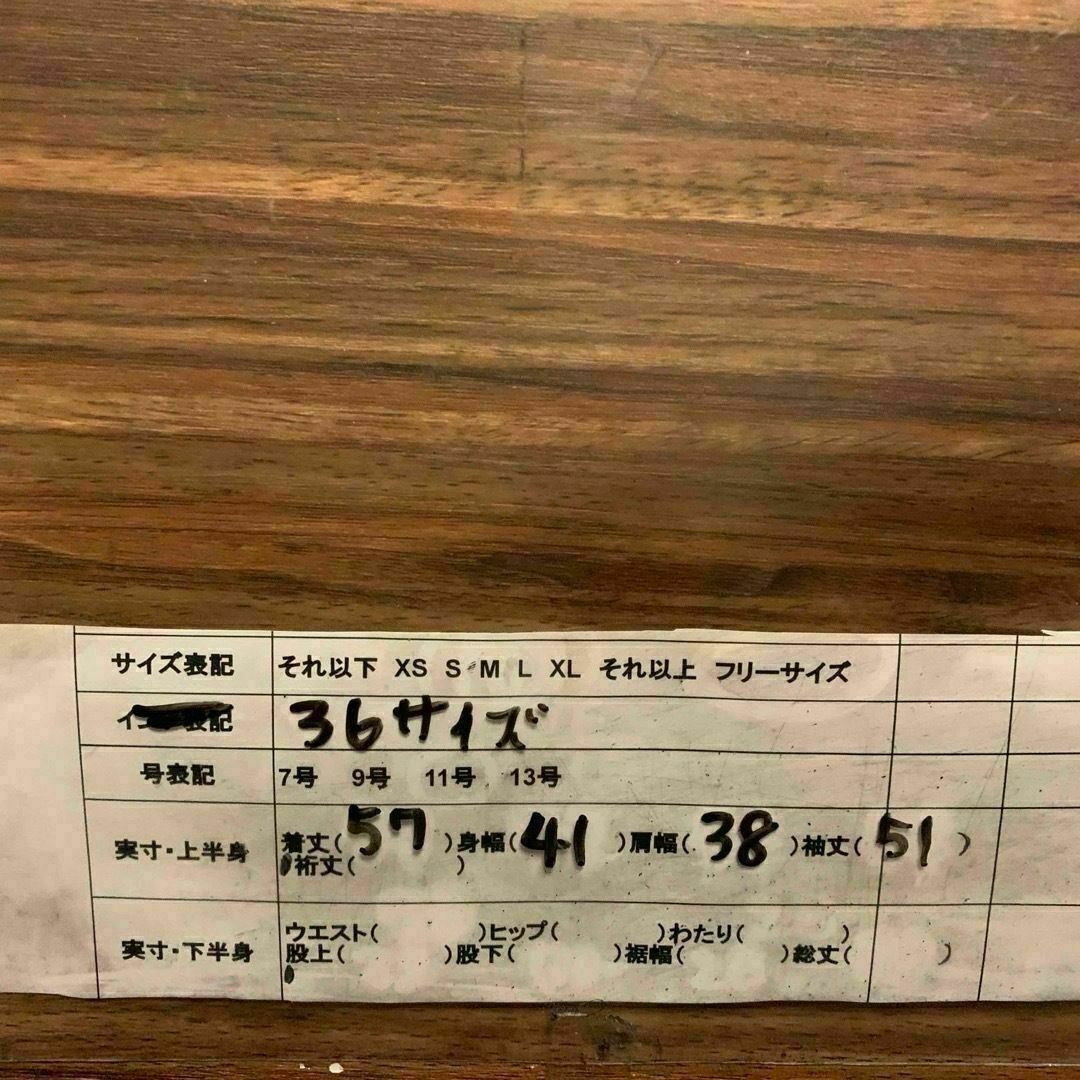 サイズ表記 それ以下 XS S M L XL それ以上 フリーサイズ
表記 36サイズ
号表記 7号 9号 11号 13号
実寸・上半身 着丈(57)身幅(41)肩幅(38)袖丈(51)
裄丈( )
実寸・下半身 ウエスト( )ヒップ( )わたり( )
股上( )股下( )裾幅( )総丈( )